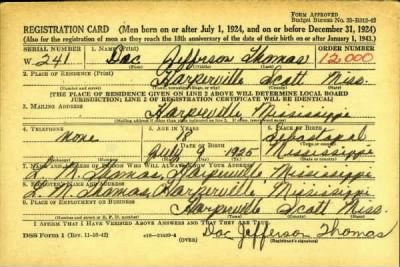 FORM APPROVED
Budget Bureau No. 33-R012-42
REGISTRATION CARD (Men born on or after July 1, 1924, and on or before December 31, 1924)
(Also for the registration of men as they reach the 18th anniversary of the date of their birth on or after January 1, 1943.)
SERIAL NUMBER 1. NAME (Print) ORDER NUMBER
W 241 Doc Jefferson Thomas 12,000
2. PLACE OF RESIDENCE (Print)
Harperville Scott Miss.
[THE PLACE OF RESIDENCE GIVEN ON LINE 2 ABOVE WILL DETERMINE LOCAL BOARD
JURISDICTION; LINE 2 OF REGISTRATION CERTIFICATE WILL BE IDENTICAL]
3. MAILING ADDRESS
Harperville Mississippi
4. TELEPHONE 5. AGE IN YEARS 6. PLACE OF BIRTH
None 18 Sebastapol
DATE OF BIRTH
July 9 1925 Mississippi
7. NAME AND ADDRESS OF PERSON WHO WILL ALWAYS KNOW YOUR ADDRESS
L. M. Thomas, Harperville Mississippi
8. EMPLOYER'S NAME AND ADDRESS
L. M. Thomas, Harperville Mississippi
9. PLACE OF EMPLOYMENT OR BUSINESS
Harperville Scott Miss.
I AFFIRM THAT I HAVE VERIFIED ABOVE ANSWERS AND THAT THEY ARE TRUE.
DSS Form 1 (Rev. 11-16-42) (OVER) Doc Jefferson Thomas
(Registrant's signature)